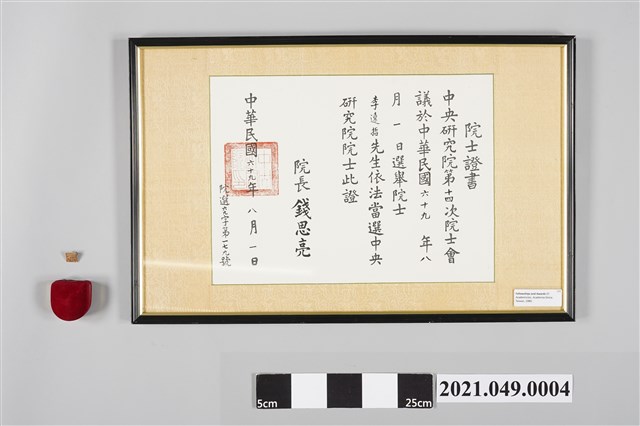 院士證書
中央研究院第十四次院士會
議於中華民國六十九年八
月一日選舉院士
李遠哲先生依法當選中央
研究院院士此證
院長 錢思亮
中華民國六十九年八月一日
5cm
25cm
2021.049.0004